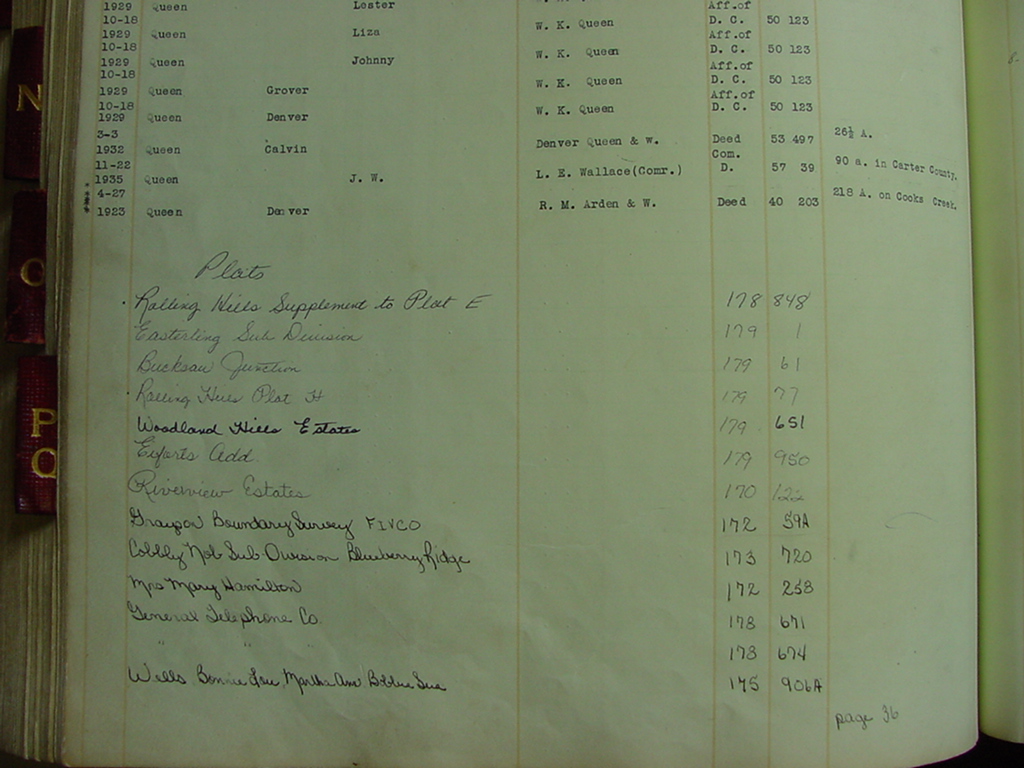 N
O
P
Q
1929 Queen Lester Aff.of
10-18 W. K. Queen D. C. 50 123
1929 Queen Liza Aff.of
10-18 W. K. Queen D. C. 50 123
1929 Queen Johnny Aff.of
10-18 W. K. Queen D. C. 50 123
1929 Queen Grover Aff.of
10-18 W. K. Queen D. C. 50 123
1929 Queen Denver
3-3
1932 Queen Calvin Denver Queen & W. Deed 53 497 26½ A.
11-22 Com.
1935 Queen J. W. L. E. Wallace(Comr.) D. 57 39 90 a. in Carter County.
4-27
1923 Queen Denver R. M. Arden & W. Deed 40 203 218 A. on Cooks Creek.
Plats
Rolling Hills Supplement to Plat E 178 848
Easterling Sub Division 179 1
Junction 179 61
Rolling Hills Plat H 179 77
Woodland Hills Estates 179 651
Add 179 950
Riverview Estates 170
Boundary Survey FIVCO 172 59A
Sub Division Blueberry Ridge 173 720
Mary Hamilton 172 253
General Telephone Co. 178 671
" " 178 674
Wells Bonnie Lou, Martha Ann 175 906A
page 36